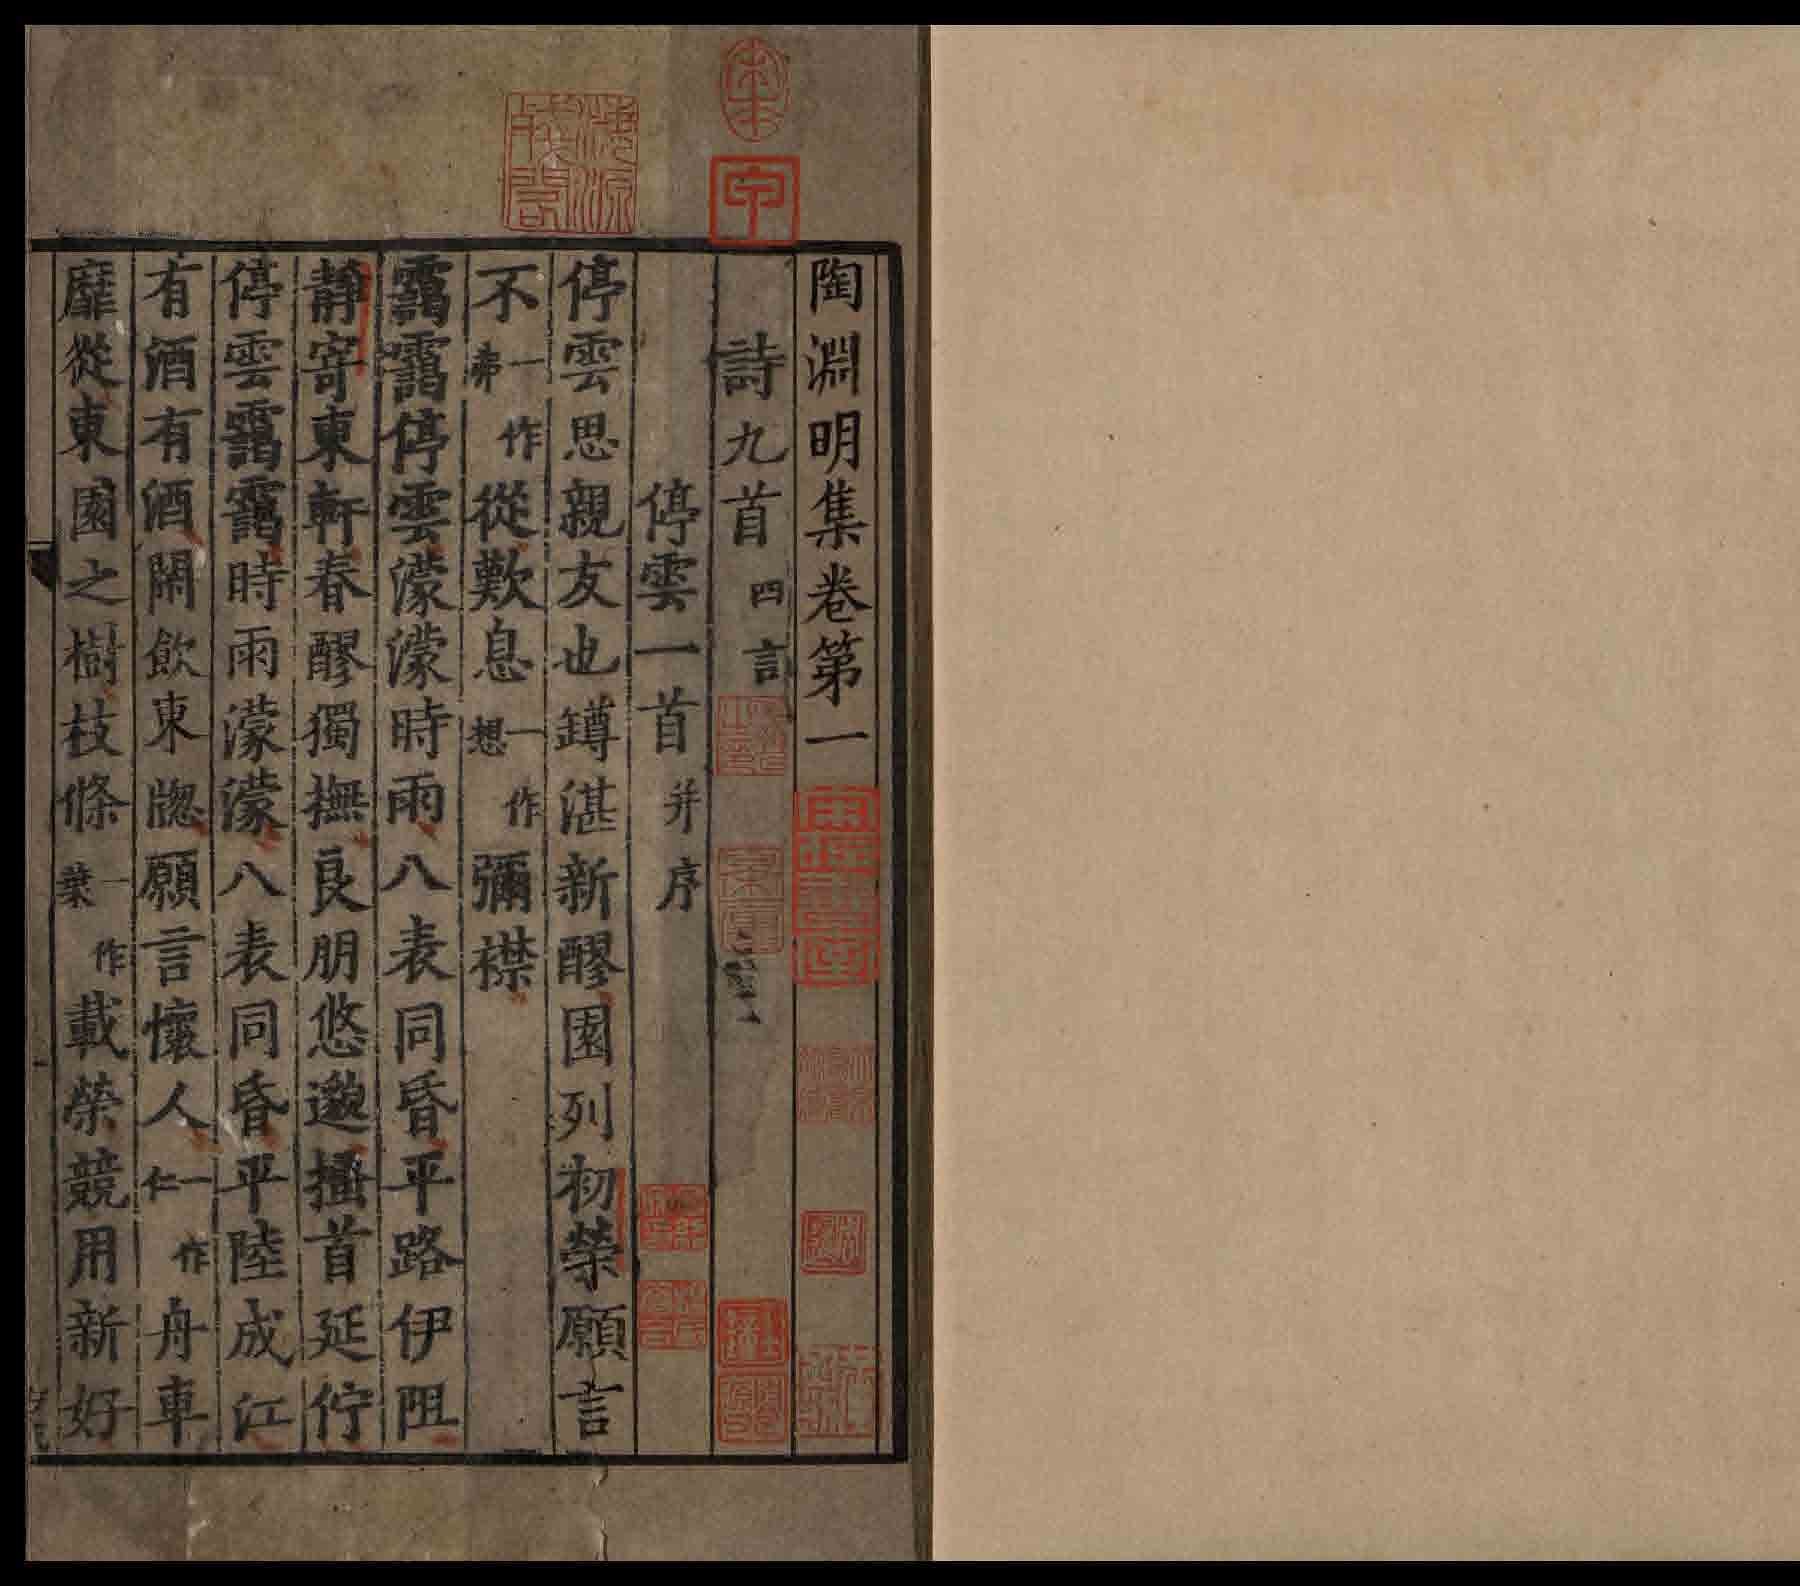 陶淵明集卷第一
詩九首四言
停雲一首并序
停雲思親友也罇湛新醪園列初榮願言
不一作弗從歎息一作想彌襟
靄靄停雲濛濛時雨八表同昏平路伊阻
靜寄東軒春醪獨撫良朋悠邈搔首延佇
停雲靄靄時雨濛濛八表同昏平陸成江
有酒有酒閑飲東牕願言懷人一作仁舟車
靡從東園之樹枝條一作葉載榮競用新好
宋本
甲